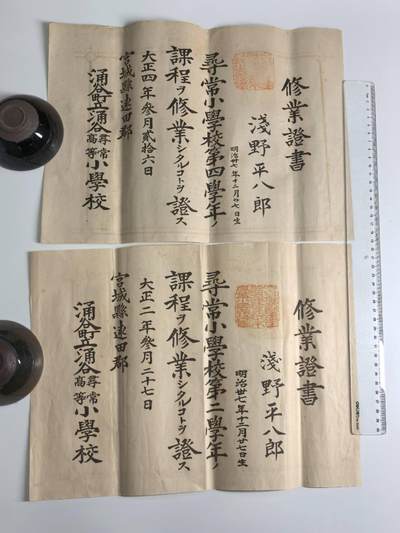 修業證書
淺野平八郎
明治卅七年十二月廿七日生
尋常小學校第四學年ノ
課程ヲ修業シタルコトヲ證ス
大正四年參月貳拾六日
宮城縣遠田郡
涌谷町立涌谷尋常高等小學校
修業證書
淺野平八郎
明治卅七年十二月廿七日生
尋常小學校第二學年ノ
課程ヲ修業シタルコトヲ證ス
大正二年參月二十七日
宮城縣遠田郡
涌谷町立涌谷尋常高等小學校